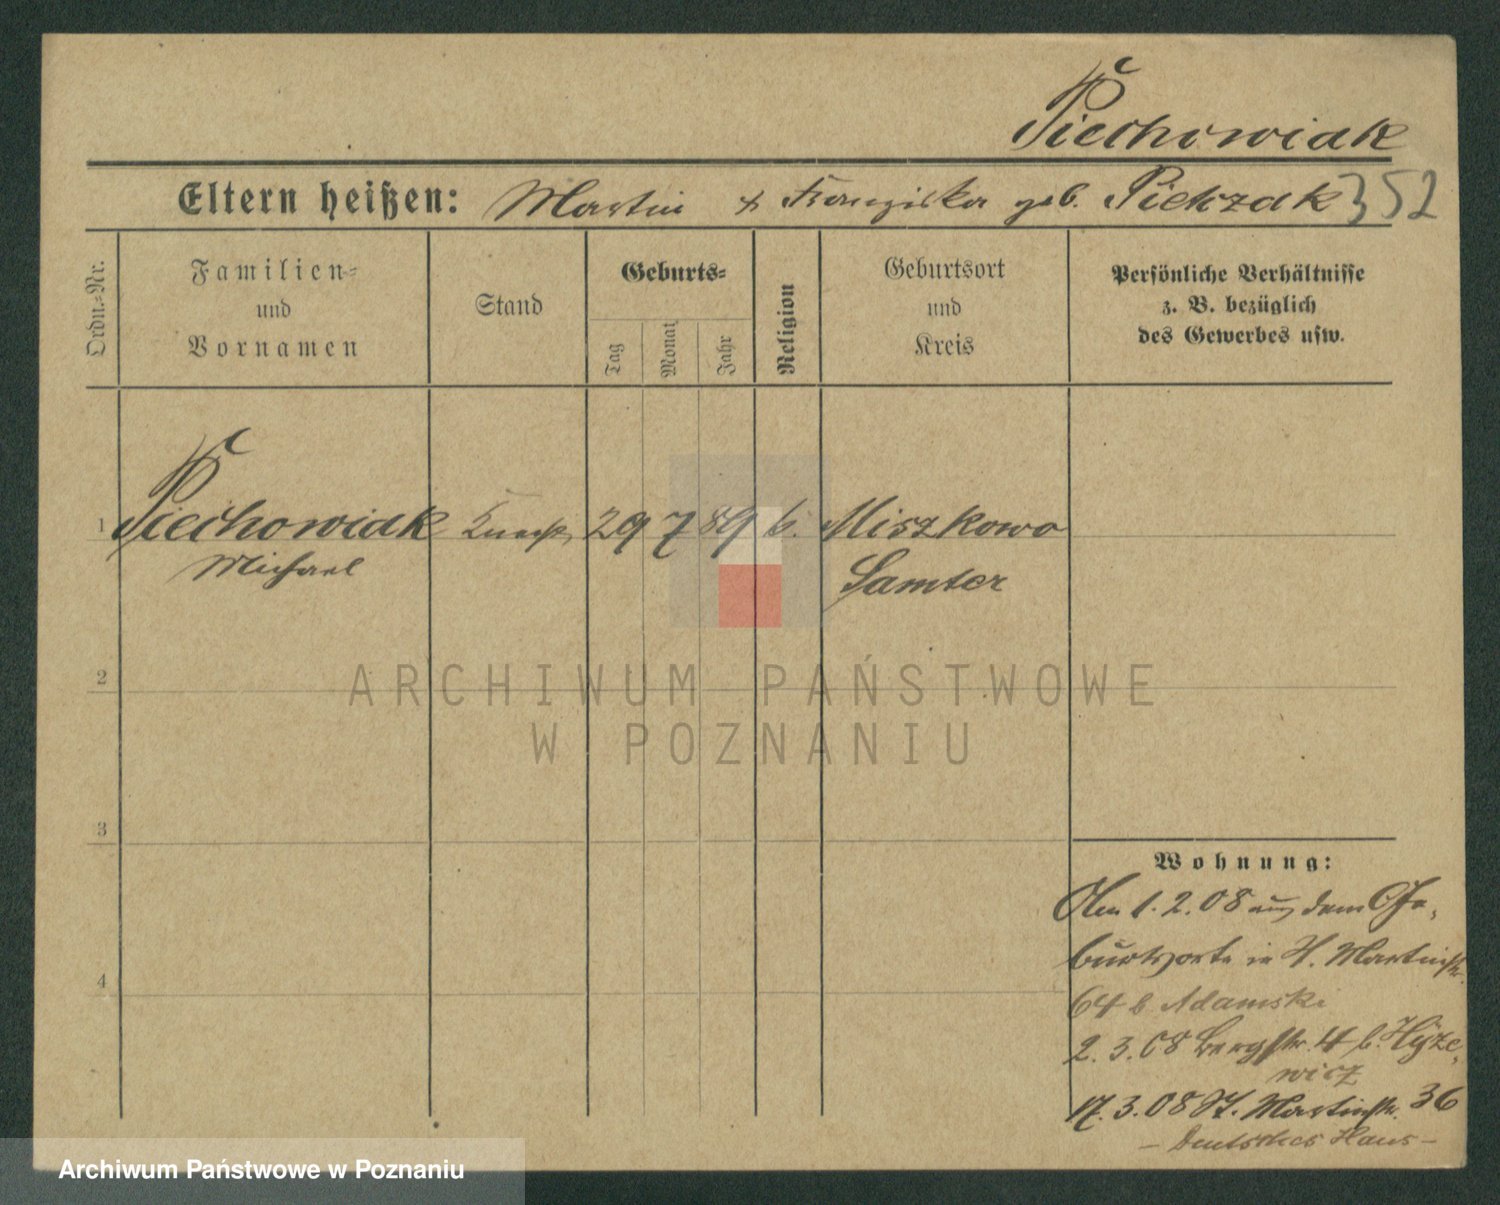 Piechowiak
Eltern heißen: Martin & Franziska geb. Piekzak 352
Ordn.=Nr.
Familien=
und
Vornamen
Stand
Geburts=
Tag
Monat
Jahr
Religion
Geburtsort
und
Kreis
Persönliche Verhältnisse
z. B. bezüglich
des Gewerbes usw.
1 Piechowiak Knecht 29 7 89 k. Miszkowo
Michael Samter
2
3
4
ARCHIWUM PAŃSTWOWE
W POZNANIU
Wohnung:
Am 1. 2. 08 aus dem Ge-
burtsorte in St. Martinstr.
64 b. Adamski
2. 3. 08 Bergstr. 4 b. Hyze-
wicz
17. 3. 08 St. Martinstr. 36
– Deutsches Haus –
Archiwum Państwowe w Poznaniu